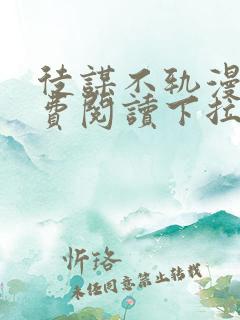 徒謀不軌漫
費閱讀下拉
忻珞
未經同意禁止轉載